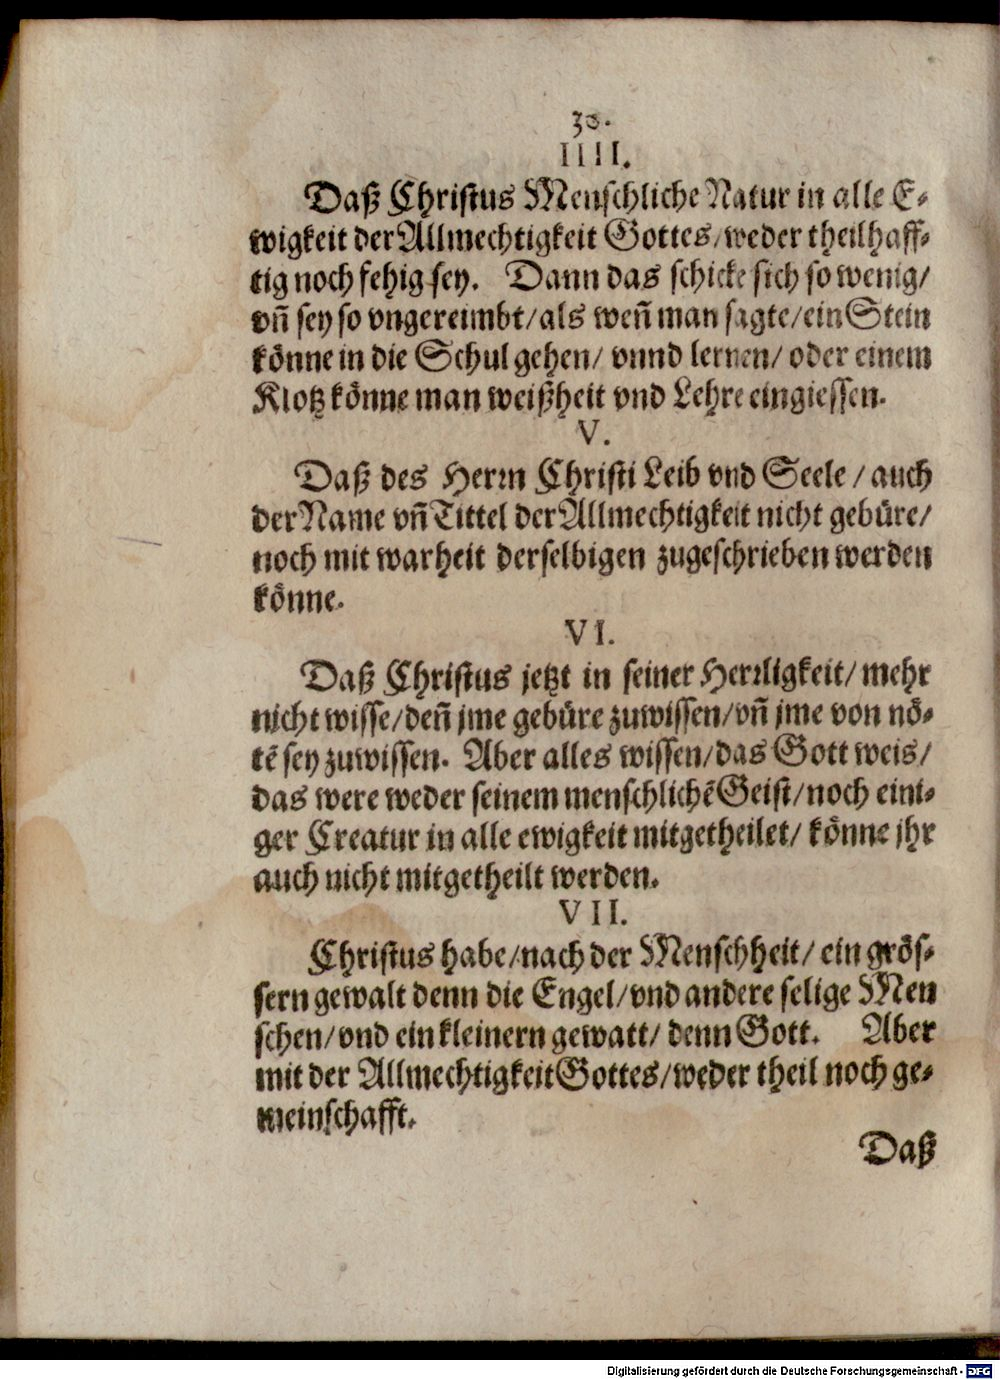 30.
IIII.
Daß Christus Menschliche Natur in alle E-
wigkeit der Allmechtigkeit Gottes/weder theilhaff-
tig noch fehig sey. Dann das schicke sich so wenig/
vn̄ sey so vngereimbt/als wen̄ man sagte/ein Stein
könne in die Schul gehen/ vnnd lernen/ oder einem
Klotz könne man weißheit vnd Lehre eingiessen.
V.
Daß des Herrn Christi Leib vnd Seele / auch
der Name vn̄ Tittel der Allmechtigkeit nicht gebüre/
noch mit warheit derselbigen zugeschrieben werden
könne.
VI.
Daß Christus jetzt in seiner Herrligkeit/ mehr
nicht wisse/den̄ jme gebüre zuwissen/vn̄ jme von nö-
tē sey zuwissen. Aber alles wissen/das Gott weis/
das were weder seinem menschlichē Geist/noch eini-
ger Creatur in alle ewigkeit mitgetheilet/ könne jhr
auch nicht mitgetheilt werden.
VII.
Christus habe/nach der Menschheit/ ein grös-
sern gewalt denn die Engel/vnd andere selige Men
schen/vnd ein kleinern gewatt/ denn Gott. Aber
mit der Allmechtigkeit Gottes/weder theil noch ge-
meinschafft.
Daß
Digitalisierung gefördert durch die Deutsche Forschungsgemeinschaft - DFG